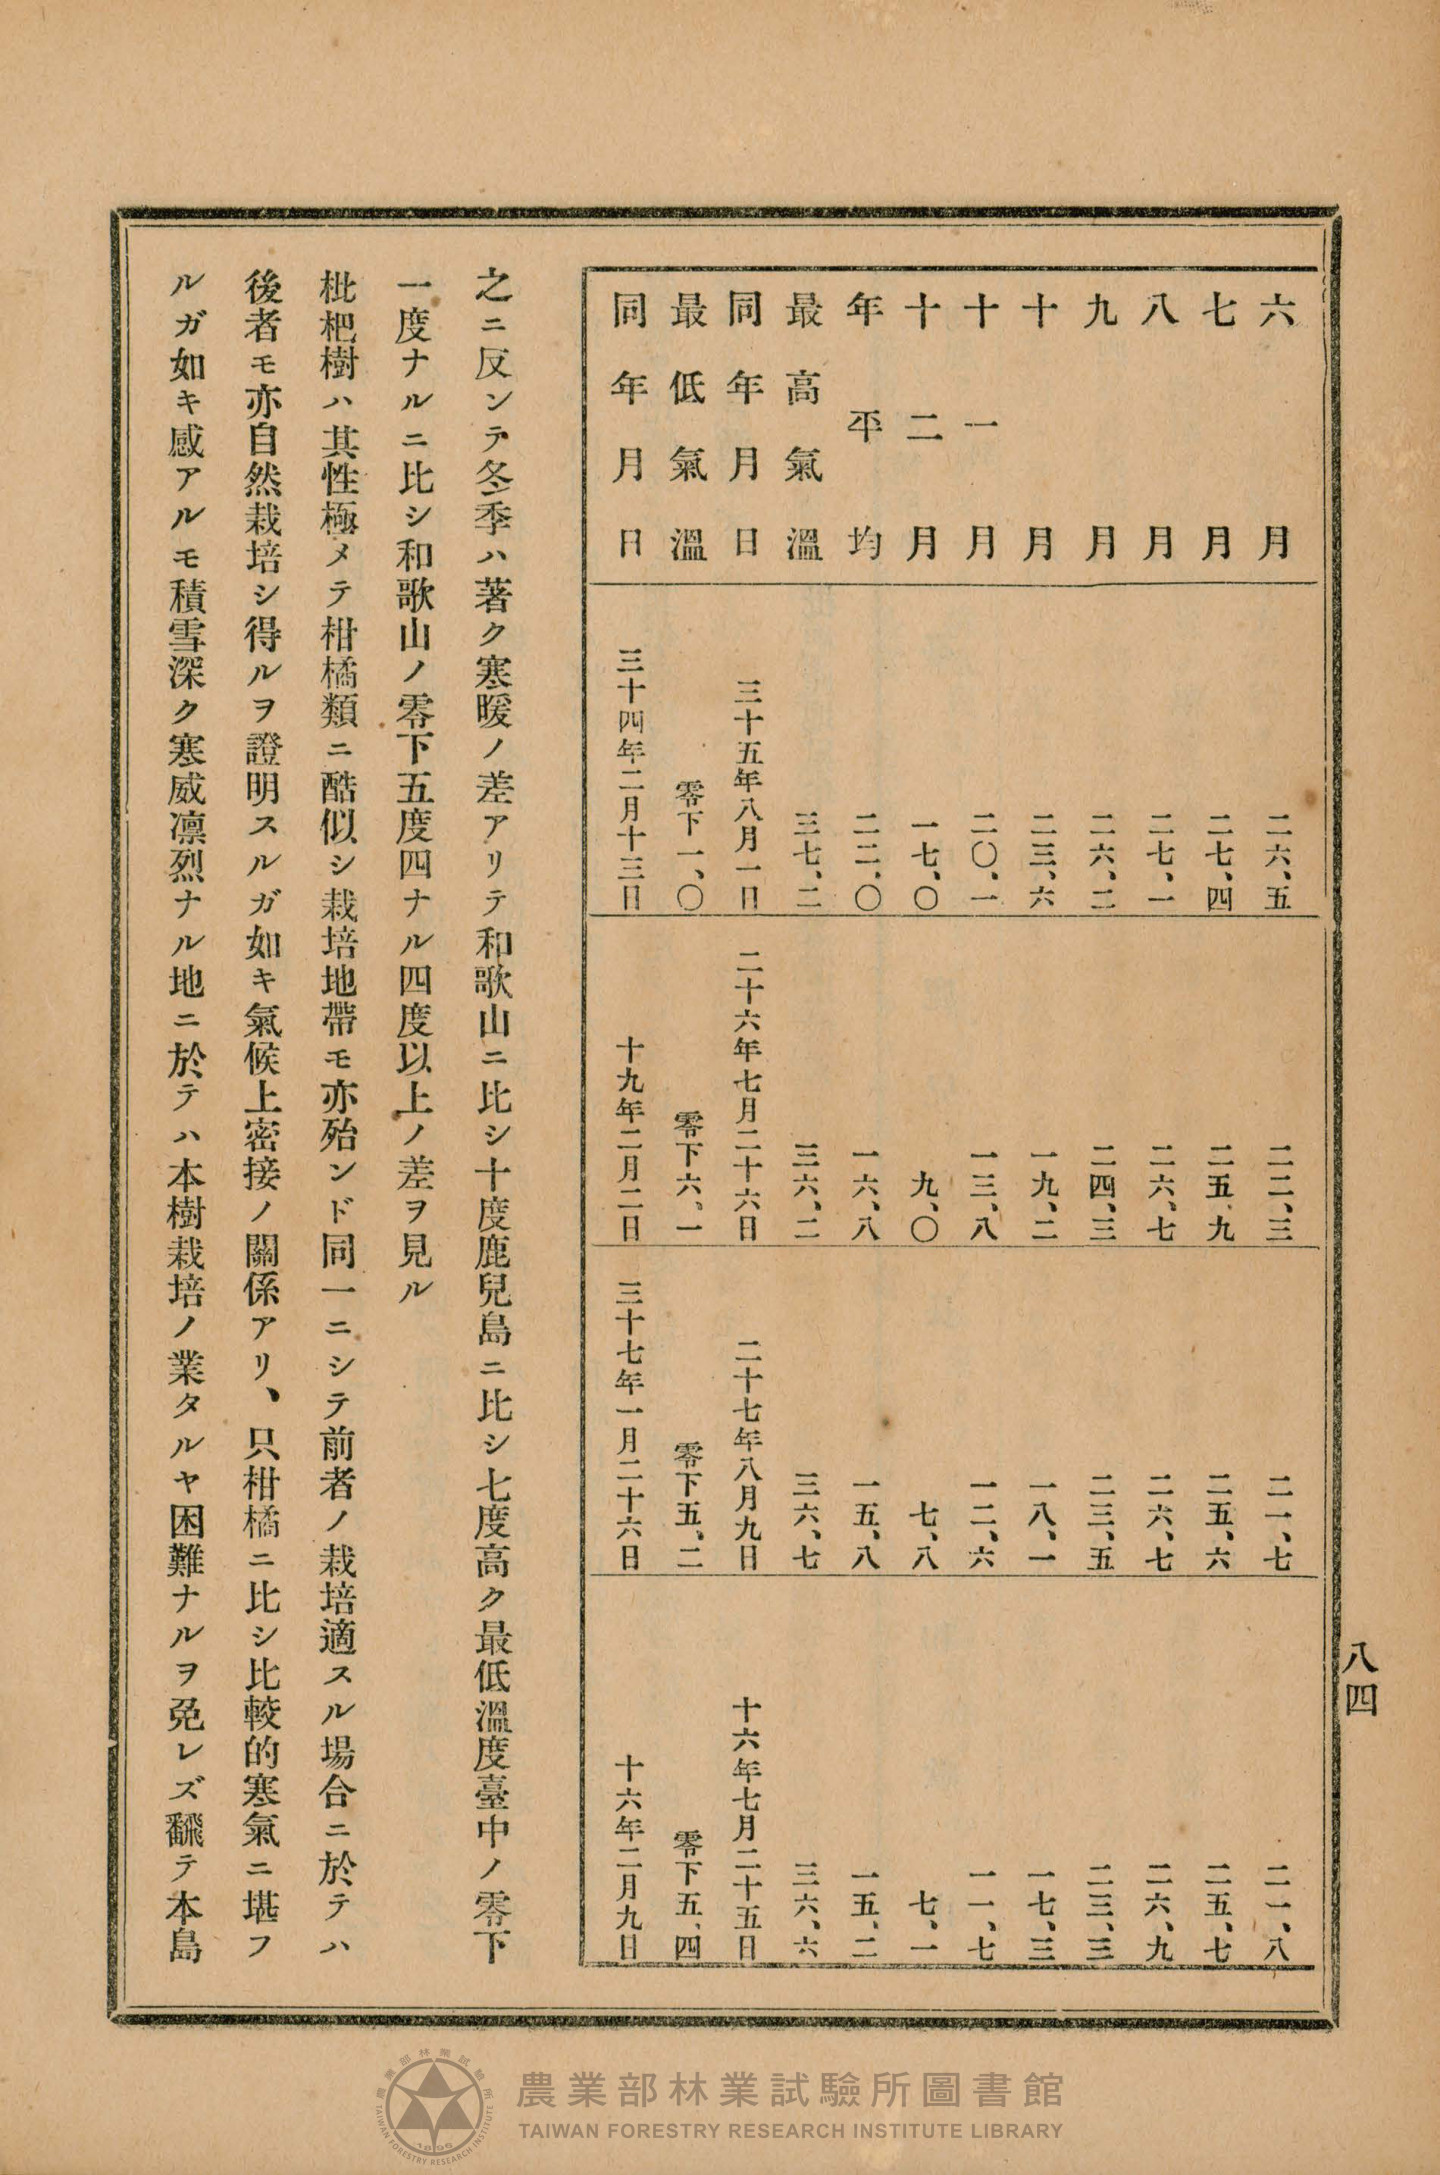 八四
六月 二六、五 二二、三 二一、七 二一、八
七月 二七、四 二五、九 二五、六 二五、七
八月 二七、一 二六、七 二六、七 二六、九
九月 二六、二 二四、三 二三、五 二三、三
十月 二三、六 一九、二 一八、一 一七、三
十一月 二〇、一 一三、八 一二、六 一一、七
十二月 一七、〇 九、〇 七、八 七、一
年平均 二二、〇 一六、八 一五、八 一五、二
最高氣溫 三七、二 三六、二 三六、七 三六、六
同年月日 三十五年八月一日 二十六年七月二十六日 二十七年八月九日 十六年七月二十五日
最低氣溫 零下一、〇 零下六、一 零下五、二 零下五、四
同年月日 三十四年二月十三日 十九年二月二日 三十七年一月二十六日 十六年二月九日
之ニ反シテ冬季ハ著ク寒暖ノ差アリテ和歌山ニ比シ十度鹿兒島ニ比シ七度高ク最低溫度臺中ノ零下
一度ナルニ比シ和歌山ノ零下五度四ナル四度以上ノ差ヲ見ル
枇杷樹ハ其性極メテ柑橘類ニ酷似シ栽培地帶モ亦殆ンド同一ニシテ前者ノ栽培適スル場合ニ於テハ
後者モ亦自然栽培シ得ルヲ證明スルガ如キ氣候上密接ノ關係アリ、只柑橘ニ比シ比較的寒氣ニ堪フ
ルガ如キ感アルモ積雪深ク寒威凛烈ナル地ニ於テハ本樹栽培ノ業タルヤ困難ナルヲ免レズ飜テ本島
農業部林業試驗所圖書館
TAIWAN FORESTRY RESEARCH INSTITUTE LIBRARY
農業部林業試驗所
TAIWAN FORESTRY RESEARCH INSTITUTE
1896